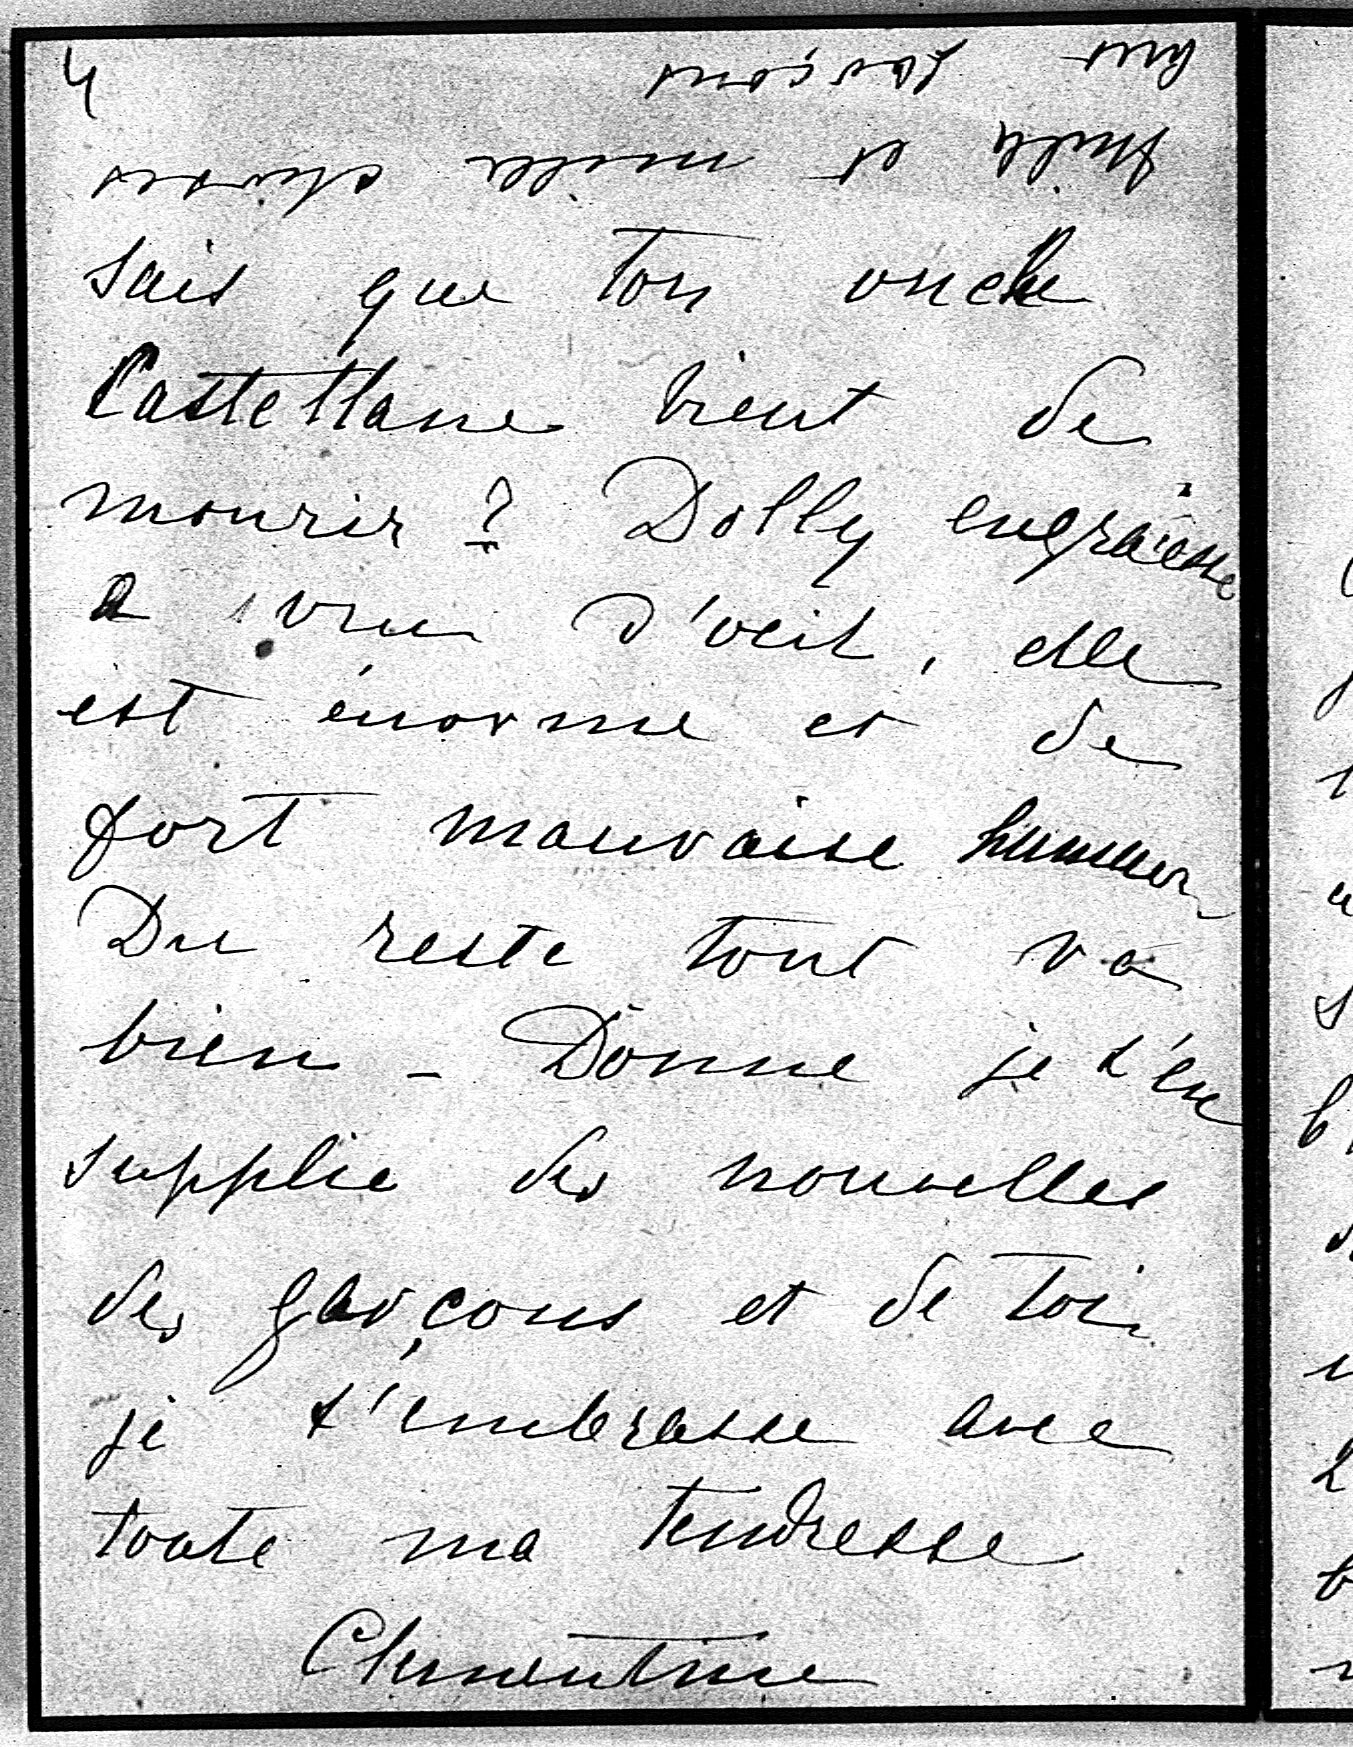 4
et mille choses
garçons
sais que ton oncle
Castellane vient de
mourir ? Dolly engraisse
a vue d'oeil, elle
est énorme et de
fort mauvaise humeur
Du reste tout va
bien - Donne je t'en
supplie des nouvelles
des garçons et de toi
je t'embrasse avec
toute ma tendresse
Clementine